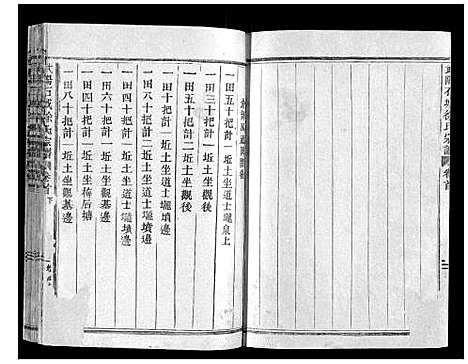 武陽石城徐氏宗譜 卷首
一田五十把計一坵土坐道士壠泉上
一田三十把計一坵土坐觀後
一田五十把計二坵土坐觀後
一田五十把計一坵土坐道士壠墳邊
一田四十把計一坵土坐道士壠墳邊
一田六十把計一坵土坐道士壠墳邊
一田四十把計一坵土坐梅后塘
一田八十把計一坵土坐觀基邊
武陽石城徐氏宗譜 卷首下